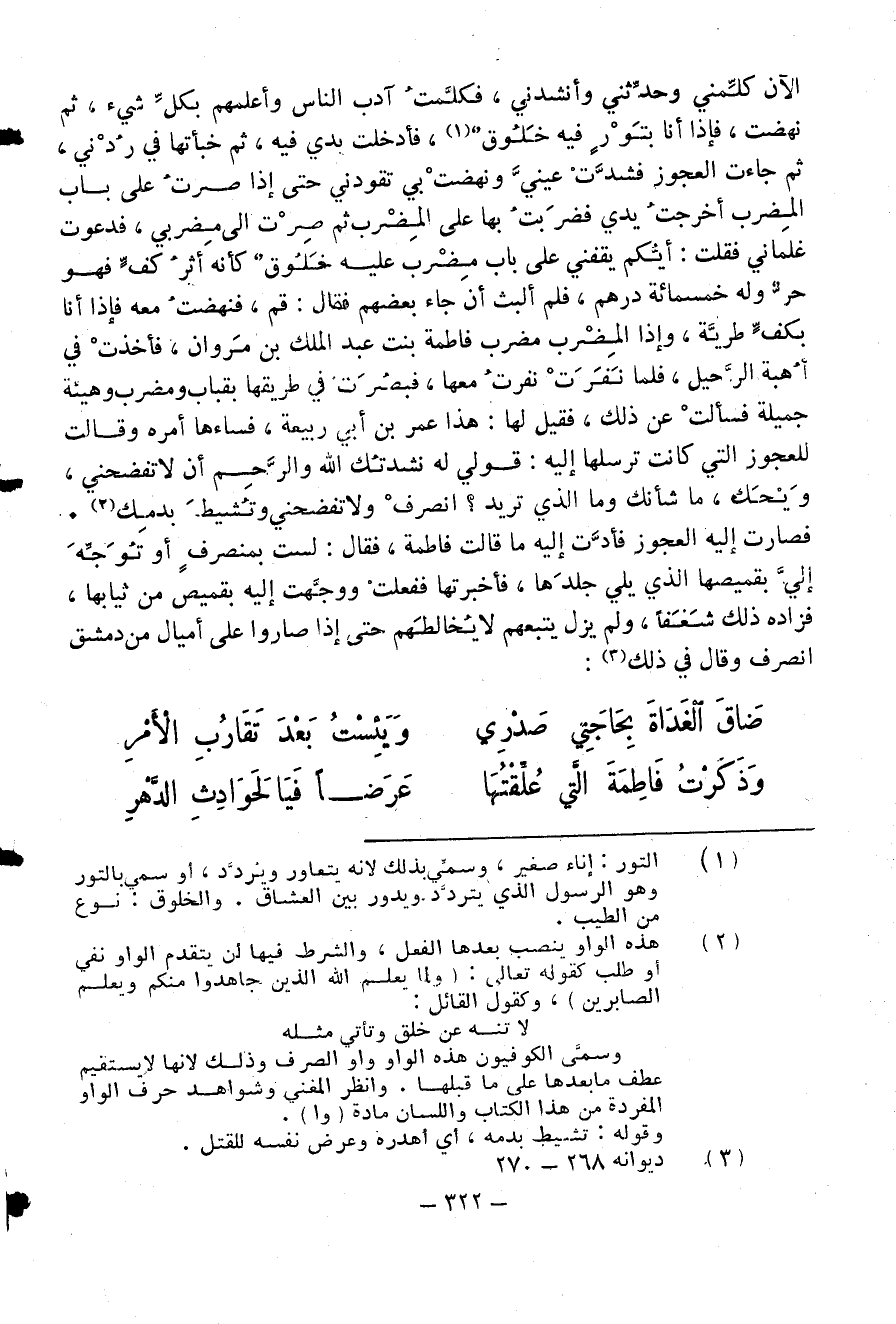 الآن كلِّمني وحدِّثني وأنشدني ، فكلَّمتُ آدب الناس وأعلمهم بكلِّ شيء ، ثم
نهضت ، فإذا أنا بتَوْرٍ فيه خَلُوقٌ(١) ، فأدخلت يدي فيه ، ثم خبأتها في رُدْني ،
ثم جاءت العجوز فشدَّتْ عينيَّ ونهضتْ بي تقودني حتى إذا صرتُ على باب
المِضرب أخرجتُ يدي فضرَبتُ بها على المِضْرب ثم صِرْت الى مِضربي ، فدعوت
غلماني فقلت : أيُّكم يقفني على باب مِضْرب عليه خَلُوقٌ كأنه أثرُ كفٍّ فهو
حرٌّ وله خمسمائة درهم ، فلم ألبث أن جاء بعضهم فقال : قم ، فنهضتُ معه فإذا أنا
بكفٍّ طريَّة ، وإذا المِضْرب مضرب فاطمة بنت عبد الملك بن مَروان ، فأخذتْ في
أُهبة الرَّحيل ، فلما نَفَرَتْ نفرتُ معها ، فبصُرَتْ في طريقها بقباب ومضرب وهيئة
جميلة فسألتْ عن ذلك ، فقيل لها : هذا عمر بن أبي ربيعة ، فساءها أمره وقالت
للعجوز التي كانت ترسلها إليه : قولي له نشدتُك الله والرَّحِم أن لاتفضحني ،
وَيْحَك ، ما شأنك وما الذي تريد ؟ انصرفْ ولاتفضحني وتُشيطَ بدمِك(٢) .
فصارت إليه العجوز فأدَّت إليه ما قالت فاطمة ، فقال : لست بمنصرفٍ أو تُوَجِّهَ
إليَّ بقميصها الذي يلي جلدَها ، فأخبرتها ففعلتْ ووجَّهت إليه بقميص من ثيابها ،
فزاده ذلك شَغَفاً ، ولم يزل يتبعهم لايُخالطهم حتى إذا صاروا على أميال من دمشق
انصرف وقال في ذلك(٣) :
ضَاقَ الْغَدَاةَ بِحَاجَتِي صَدْرِي وَيَئِسْتُ بَعْدَ تَقَارُبِ الْأَمْرِ
وَذَكَرْتُ فَاطِمَةَ الَّتِي عُلِّقْتُهَا عَرَضاً فَيَا لَحَوَادِثِ الدَّهْرِ
(١) التور : إناء صغير ، وسمّي بذلك لانه يتعاور ويُردَّد ، أو سمي بالتور
وهو الرسول الذي يتردَّد ويدور بين العشاق . والخلوق : نوع
من الطيب .
(٢) هذه الواو ينصب بعدها الفعل ، والشرط فيها أن يتقدم الواو نفي
أو طلب كقوله تعالى : ( ولما يعلم الله الذين جاهدوا منكم ويعلم
الصابرين ) ، وكقول القائل :
لا تنه عن خلق وتأتي مثله
وسمَّى الكوفيون هذه الواو واو الصرف وذلك لانها لايستقيم
عطف مابعدها على ما قبلها . وانظر المغني وشواهد حرف الواو
المفردة من هذا الكتاب واللسان مادة ( وا ) .
وقوله : تشيط بدمه ، أي أهدره وعرض نفسه للقتل .
(٣) ديوانه ٢٦٨ – ٢٧٠
– ٣٢٢ –